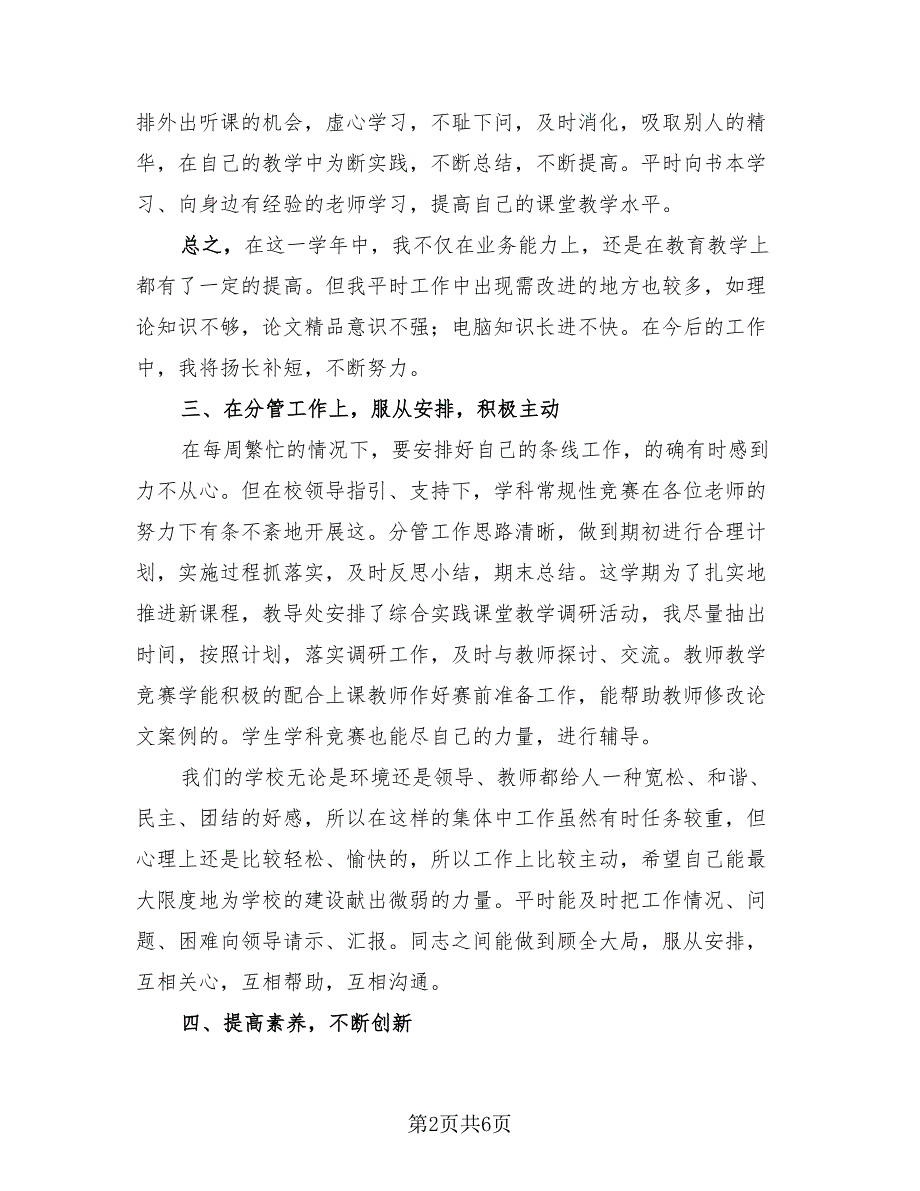 排外出听课的机会，虚心学习，不耻下问，及时消化，吸取别人的精
华，在自己的教学中为断实践，不断总结，不断提高。平时向书本学
习、向身边有经验的老师学习，提高自己的课堂教学水平。
总之，在这一学年中，我不仅在业务能力上，还是在教育教学上
都有了一定的提高。但我平时工作中出现需改进的地方也较多，如理
论知识不够，论文精品意识不强；电脑知识长进不快。在今后的工作
中，我将扬长补短，不断努力。
三、在分管工作上，服从安排，积极主动
在每周繁忙的情况下，要安排好自己的条线工作，的确有时感到
力不从心。但在校领导指引、支持下，学科常规性竞赛在各位老师的
努力下有条不紊地开展这。分管工作思路清晰，做到期初进行合理计
划，实施过程抓落实，及时反思小结，期末总结。这学期为了扎实地
推进新课程，教导处安排了综合实践课堂教学调研活动，我尽量抽出
时间，按照计划，落实调研工作，及时与教师探讨、交流。教师教学
竞赛学能积极的配合上课教师作好赛前准备工作，能帮助教师修改论
文案例的。学生学科竞赛也能尽自己的力量，进行辅导。
我们的学校无论是环境还是领导、教师都给人一种宽松、和谐、
民主、团结的好感，所以在这样的集体中工作虽然有时任务较重，但
心理上还是比较轻松、愉快的，所以工作上比较主动，希望自己能最
大限度地为学校的建设献出微弱的力量。平时能及时把工作情况、问
题、困难向领导请示、汇报。同志之间能做到顾全大局，服从安排，
互相关心，互相帮助，互相沟通。
四、提高素养，不断创新
第2页共6页